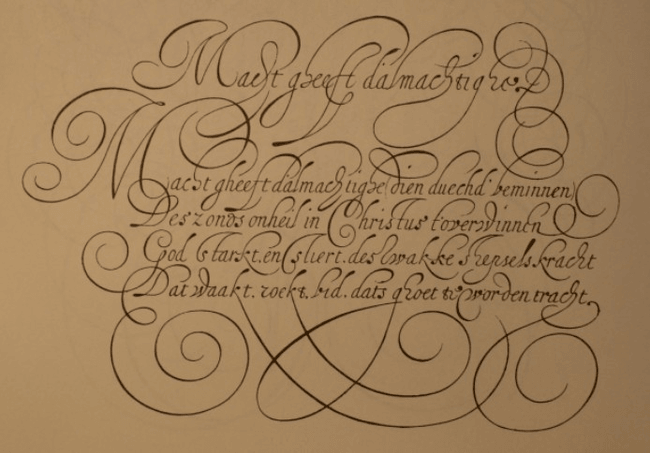 Macht gheeft dálmachtighe.
Macht gheeft dálmachtighe (dien duechd' beminnen)
Des zonds onheil in Christus t'overwinnen
God starkt. en stiert. des swakke shepsels. kracht
Dat waakt. zoekt. bid. dats ghoet te worden tracht.